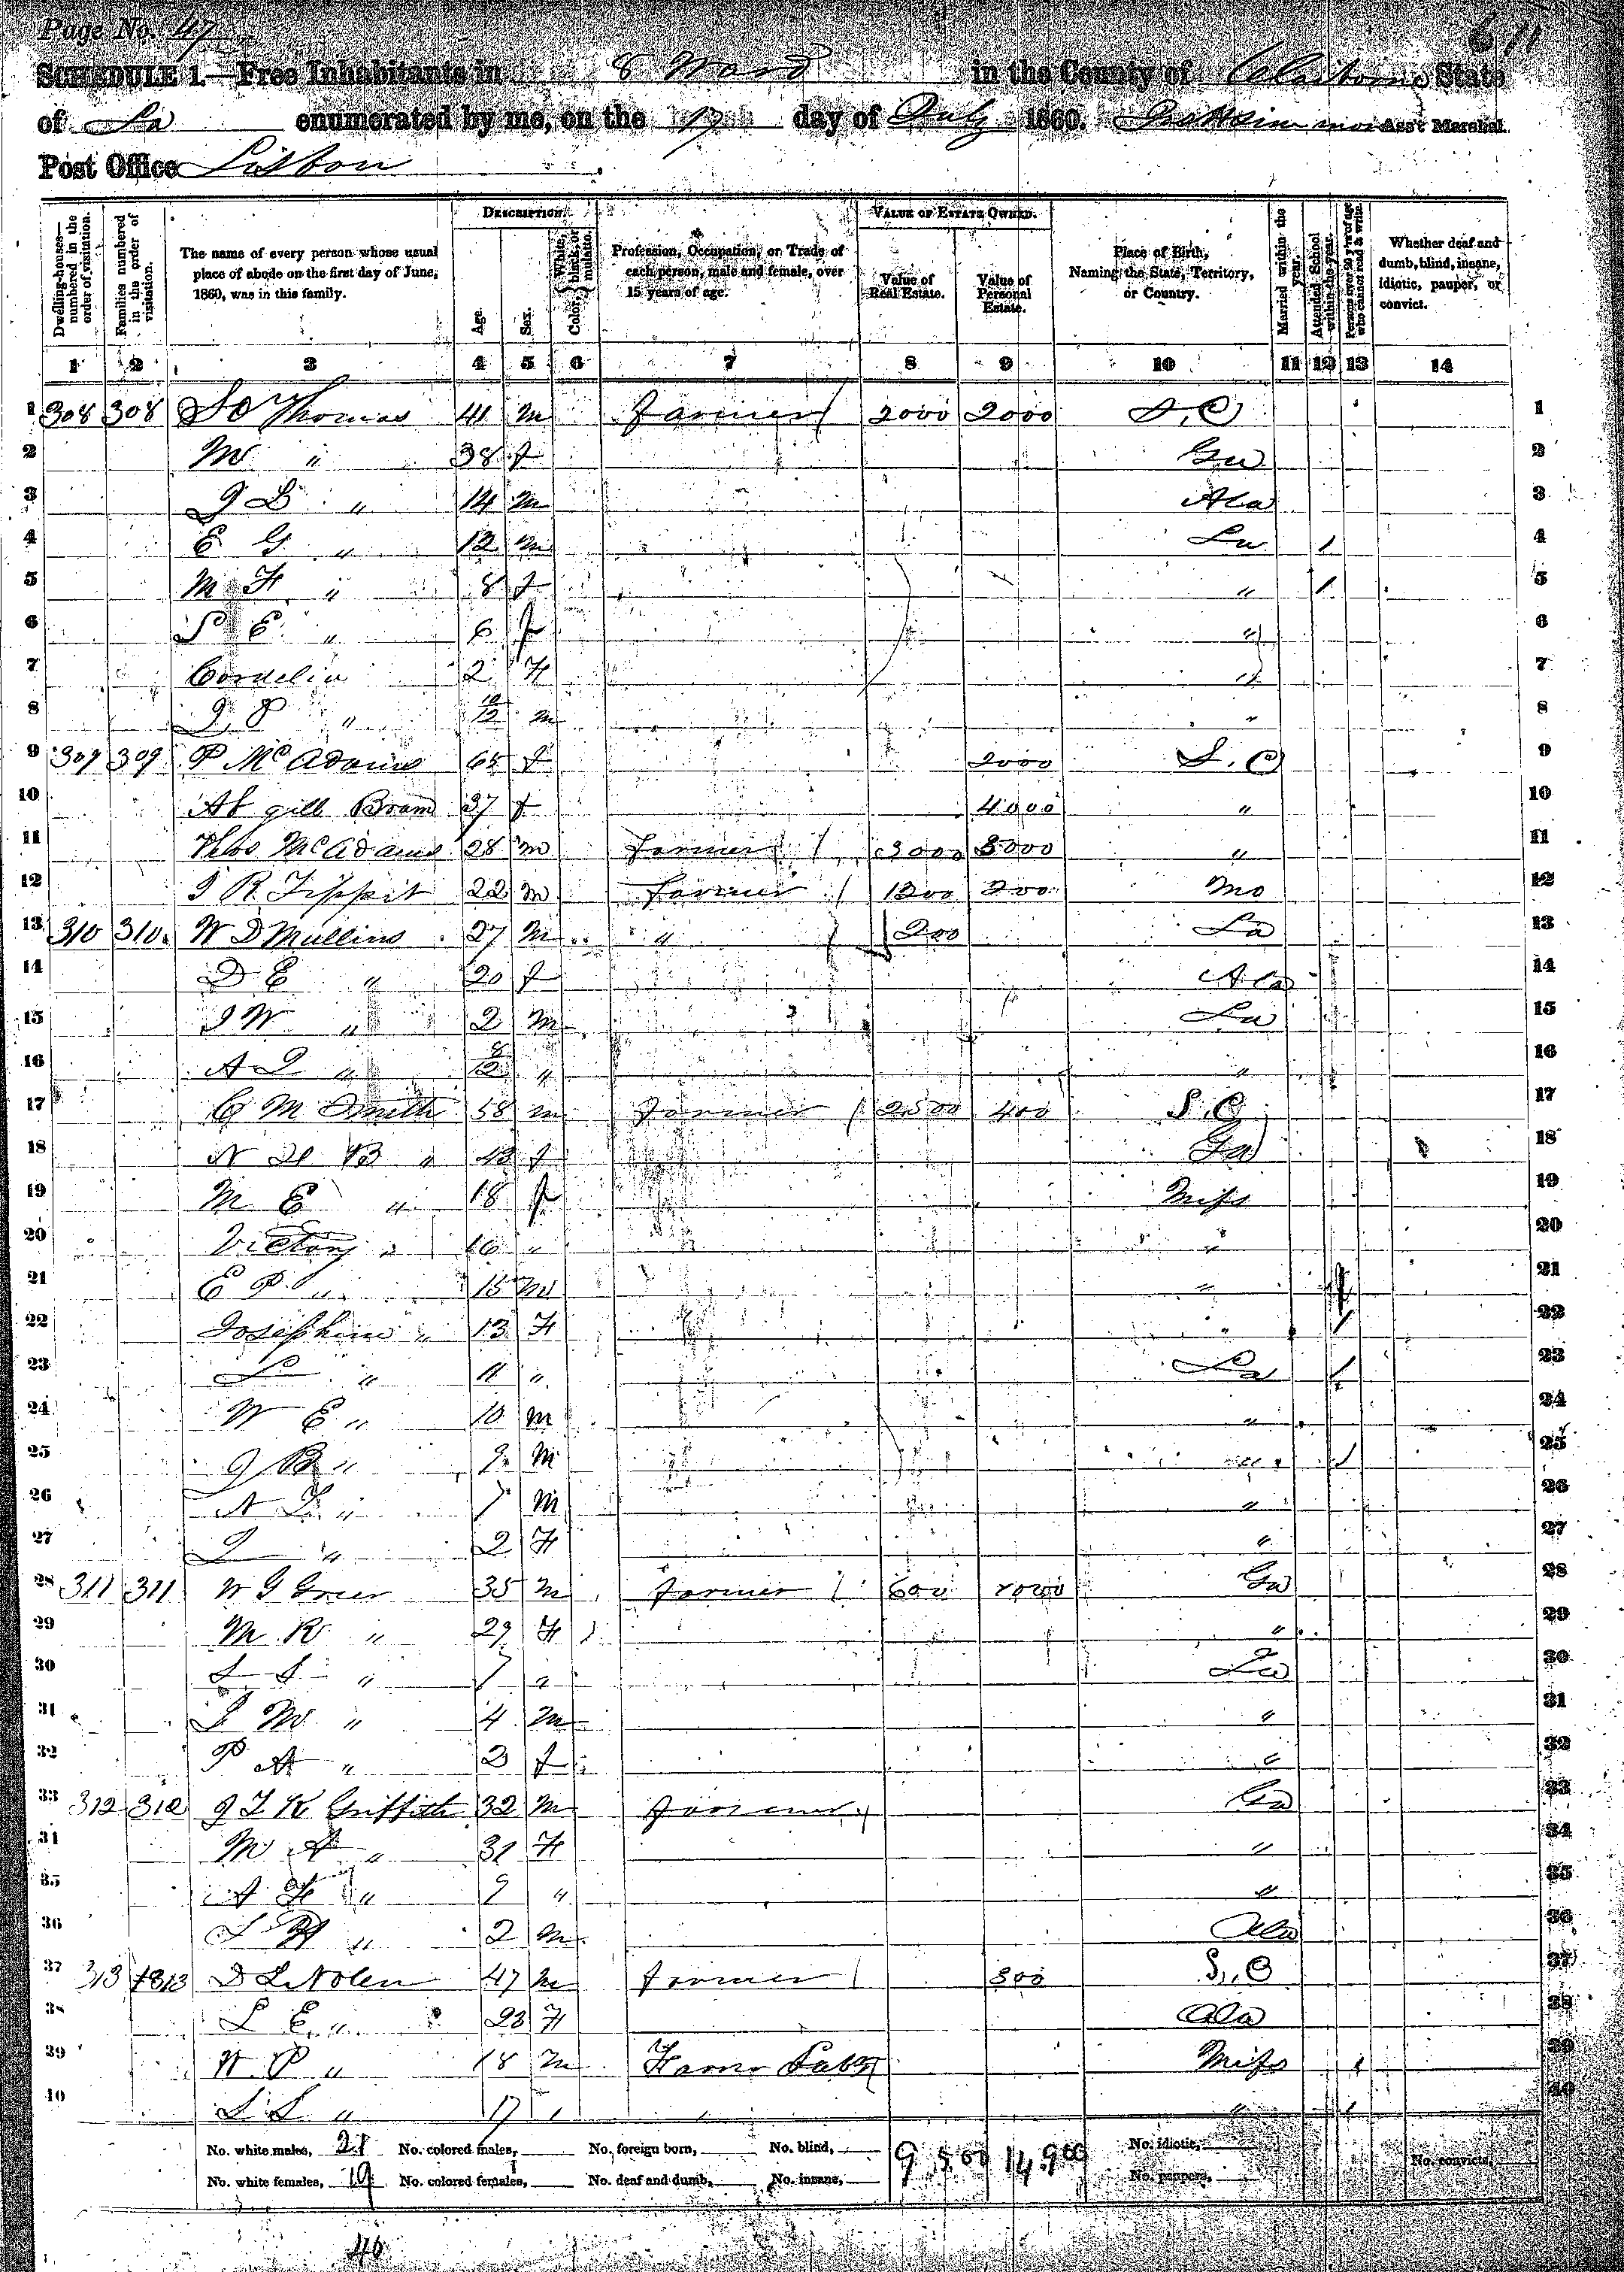 Page No. 47
611
SCHEDULE 1.—Free Inhabitants in 8 Ward in the County of Claiborne State
of La enumerated by me, on the 17 day of July 1860. Ass't Marshal.
Post Office Lisbon
DESCRIPTION. VALUE OF ESTATE OWNED.
Dwelling-houses—numbered in the order of visitation. Families numbered in the order of visitation. The name of every person whose usual place of abode on the first day of June, 1860, was in this family. Age. Sex. Color, White, black, or mulatto. Profession, Occupation, or Trade of each person, male and female, over 15 years of age. Value of Real Estate. Value of Personal Estate. Place of Birth, Naming the State, Territory, or Country. Married within the year. Attended School within the year. Persons over 20 y'rs of age who cannot read & write. Whether deaf and dumb, blind, insane, idiotic, pauper, or convict.
1 2 3 4 5 6 7 8 9 10 11 12 13 14
1 308 308 Thomas 41 m farmer 2000 2000 S.C 1
2 M " 38 f Ga 2
3 J B " 14 m Ala 3
4 E G " 12 m La / 4
5 M F " 8 f " / 5
6 S E " 6 f " 6
7 Cordelia 2 F " 7
8 J P " 10/12 m " 8
9 309 309 P McAdams 65 f 2000 S.C 9
10 Ab gill 37 f 4000 " 10
11 Thos McAdams 28 m farmer 3000 5000 " 11
12 J R Tippit 22 m farmer 1200 200 Mo 12
13 310 310 W D Mullins 27 m " 200 La 13
14 D E " 20 f Ala 14
15 J W " 2 m La 15
16 A J " 8/12 " " 16
17 C M Smith 58 m farmer 2500 400 S.C 17
18 N B " 43 f Ga 18
19 M E " 18 f Miss 19
20 Victory " 16 " " 20
21 E P " 15 m " / 21
22 Josephine " 13 F " / 22
23 L " 11 " La / 23
24 W E " 10 m " 24
25 J B " 9 M " / 25
26 A J " 7 M " 26
27 J " 2 F " 27
28 311 311 W G Greer 35 m farmer 600 1000 Ga 28
29 M R " 29 F " 29
30 L L " 7 " La 30
31 J M " 4 m " 31
32 P A " 3 f " 32
33 312 312 J L K Griffith 32 m farmer Ga 33
34 M A " 31 F " 34
35 A F " 9 " " 35
36 " 2 m Ala 36
37 313 313 D L Nolen 47 m farmer 300 S.C 37
38 L E " 23 F Ala 38
39 W P " 18 m Farm Miss / 39
40 L L " 17 " " / 40
No. white males, 21 No. colored males, No. foreign born, No. blind, 9,500 14,900 No. idiotic,
No. white females, 19 No. colored females, No. deaf and dumb, No. insane, No. paupers, No. convicts,
40